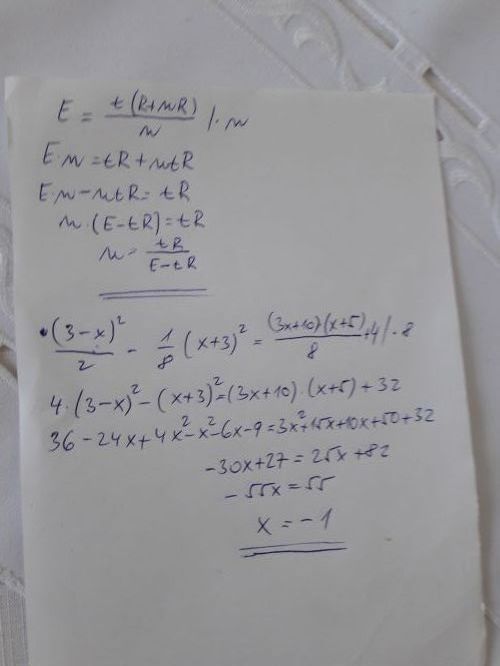 E = t(R+nR)/n /·n
E·n = tR + ntR
E·n - ntR = tR
n·(E-tR) = tR
n = tR/(E-tR)
(3-x)²/2 - 1/8 (x+3)² = (3x+10)·(x+5)/8 + 4 /·8
4·(3-x)² - (x+3)² = (3x+10)·(x+5) + 32
36 - 24x + 4x² - x² - 6x - 9 = 3x² + 15x + 10x + 50 + 32
-30x + 27 = 25x + 82
-55x = 55
x = -1